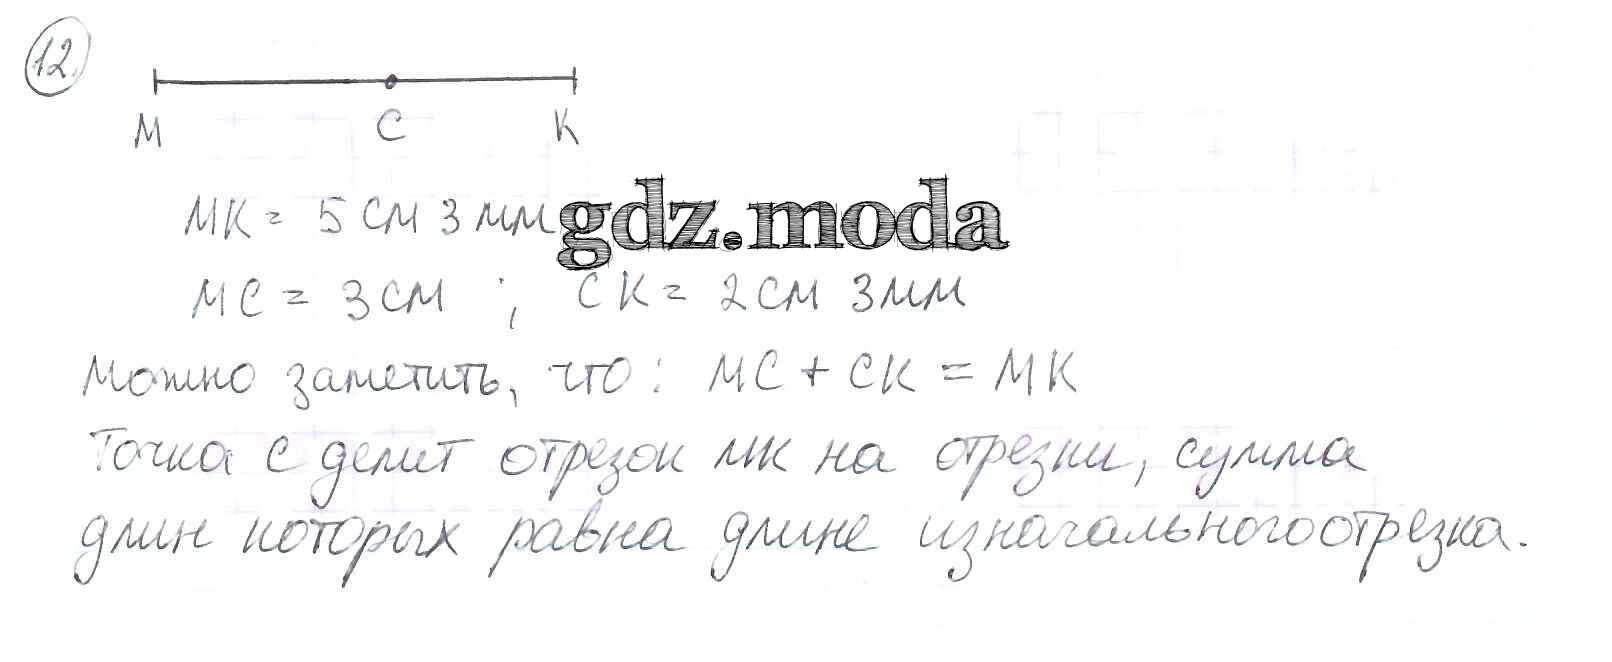 12.
M C K
MK = 5 см 3 мм
gdz.moda
MC = 3 см ; CK = 2 см 3 мм
Можно заметить, что: MC + CK = MK
Точка C делит отрезок MK на отрезки, сумма
длин которых равна длине изначального отрезка.